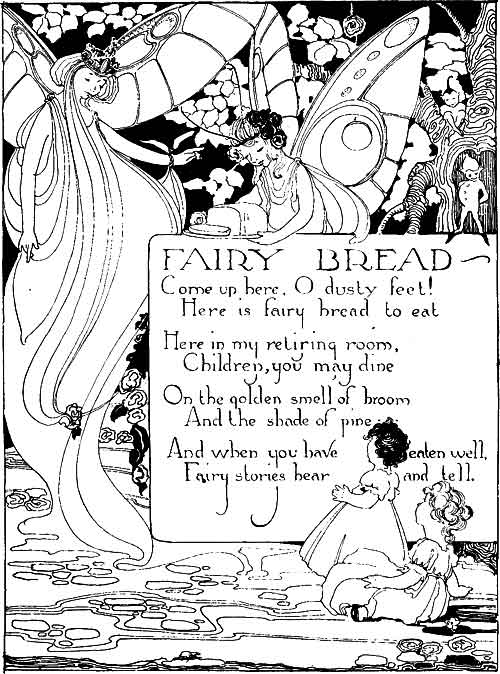 FAIRY BREAD
Come up here, O dusty feet!
Here is fairy bread to eat
Here in my retiring room,
Children, you may dine
On the golden smell of broom
And the shade of pine
And when you have eaten well,
Fairy stories hear and tell.